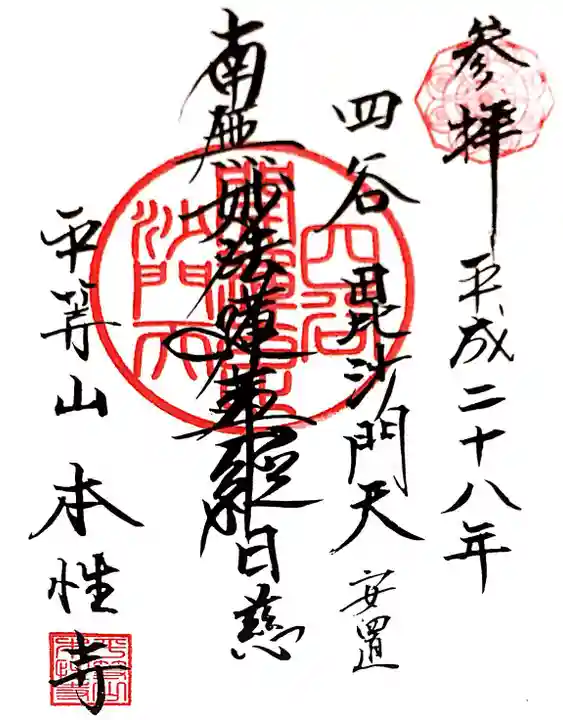 参拝 平成二十八年
四谷 毘沙門天 安置
南無妙法蓮華経 日慈
平等山 本性寺